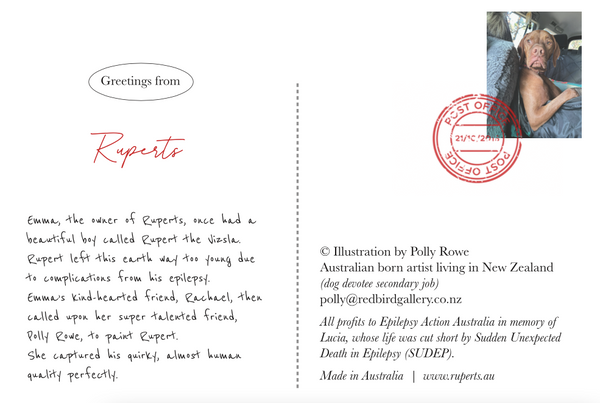 Greetings from
Ruperts
Emma, the owner of Ruperts, once had a
beautiful boy called Rupert the Vizsla.
Rupert left this earth way too young due
to complications from his epilepsy.
Emma's kind-hearted friend, Rachael, then
called upon her super talented friend,
Polly Rowe, to paint Rupert.
She captured his quirky, almost human
quality perfectly.
POST OFFICE
POST OFFICE
© Illustration by Polly Rowe
Australian born artist living in New Zealand
(dog devotee secondary job)
polly@redbirdgallery.co.nz
All profits to Epilepsy Action Australia in memory of
Lucia, whose life was cut short by Sudden Unexpected
Death in Epilepsy (SUDEP).
Made in Australia | www.ruperts.au